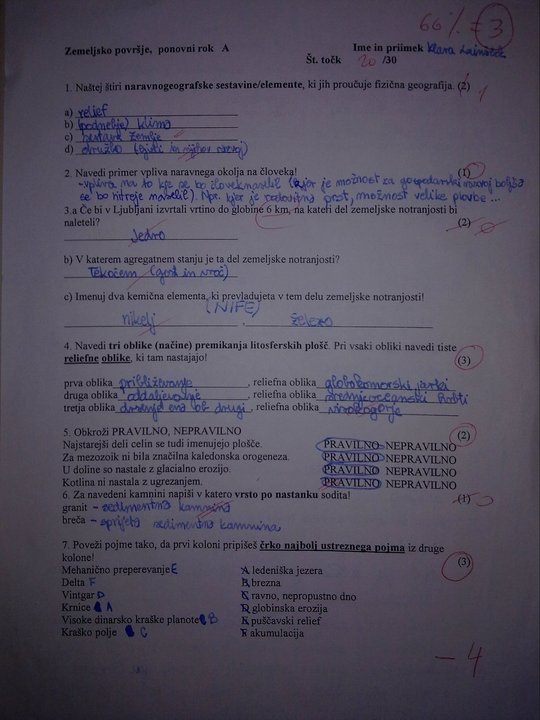 66% = 3
Zemeljsko površje, ponovni rok A Ime in priimek Klara
Št. točk 20 /30
1. Naštej štiri naravnogeografske sestavine/elemente, ki jih proučuje fizična geografija. (2) 1
a) relief
b) (podnebje) klima
c) sestava zemlje
d) družbo (ljudi in njihov razvoj)
2. Navedi primer vpliva naravnega okolja na človeka! (1)
-vpliva na to kje se bo človek naselil (kjer je možnost za gospodarski razvoj boljša
se bo hitreje naselil). Npr. kjer je rodovitna prst, možnost velike plovbe ...
3.a Če bi v Ljubljani izvrtali vrtino do globine 6 km, na kateri del zemeljske notranjosti bi
naleteli? (2)
Jedro
b) V katerem agregatnem stanju je ta del zemeljske notranjosti?
Tekočem (gost in vroč)
c) Imenuj dva kemična elementa, ki prevladujeta v tem delu zemeljske notranjosti!
(NIFE)
nikelj , železo
4. Navedi tri oblike (načine) premikanja litosferskih plošč. Pri vsaki obliki navedi tiste
reliefne oblike, ki tam nastajajo! (3)
prva oblika približevanje, reliefna oblika globokomorski jarki
druga oblika oddaljevanje, reliefna oblika srednjeoceanski hrbti
tretja oblika drsenje ena ob drugi, reliefna oblika visokogorje
5. Obkroži PRAVILNO, NEPRAVILNO (2)
Najstarejši deli celin se tudi imenujejo plošče. PRAVILNO NEPRAVILNO
Za mezozoik ni bila značilna kaledonska orogeneza. PRAVILNO NEPRAVILNO
U doline so nastale z glacialno erozijo. PRAVILNO NEPRAVILNO
Kotlina ni nastala z ugrezanjem. PRAVILNO NEPRAVILNO
6. Za navedeni kamnini napiši v katero vrsto po nastanku sodita! (1)
granit - sedimentna kamnina
breča - sprijeta sedimentna kamnina
7. Poveži pojme tako, da prvi koloni pripišeš črko najbolj ustreznega pojma iz druge
kolone! (3)
Mehanično preperevanje E A ledeniška jezera
Delta F B brezna
Vintgar D C ravno, nepropustno dno
Krnice A D globinska erozija
Visoke dinarsko kraške planote B E puščavski relief
Kraško polje C F akumulacija
- 4